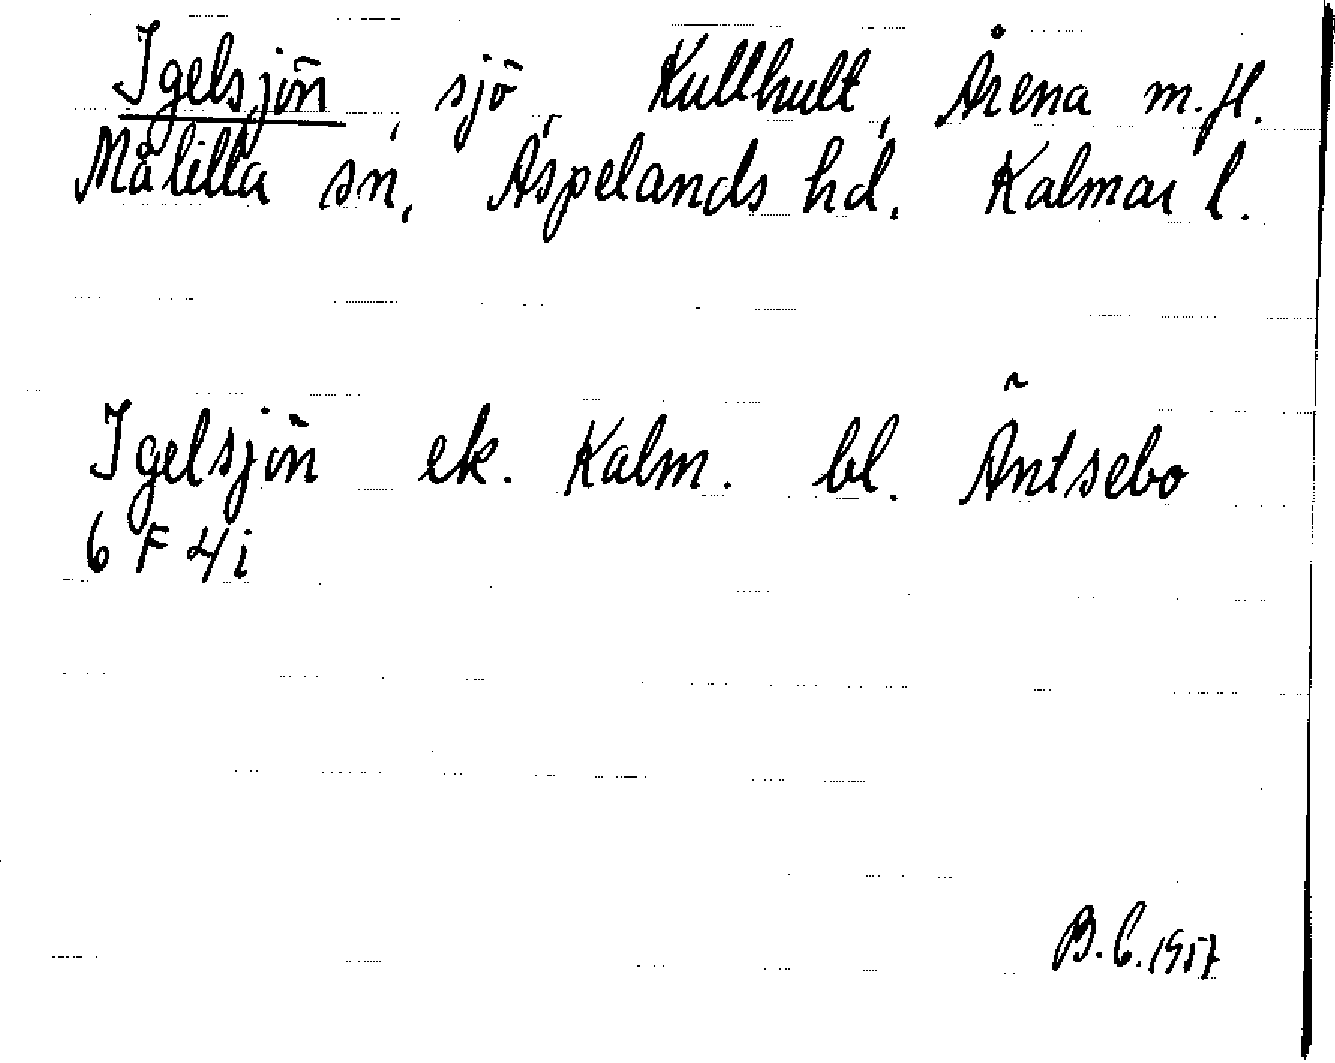 Igelsjön, sjö, Kullhult, Årena m.fl.
Målilla sn, Aspelands hd. Kalmar l.
Igelsjön ek. Kalm. bl. Äntsebo
6 F 4i
B.C. 1957